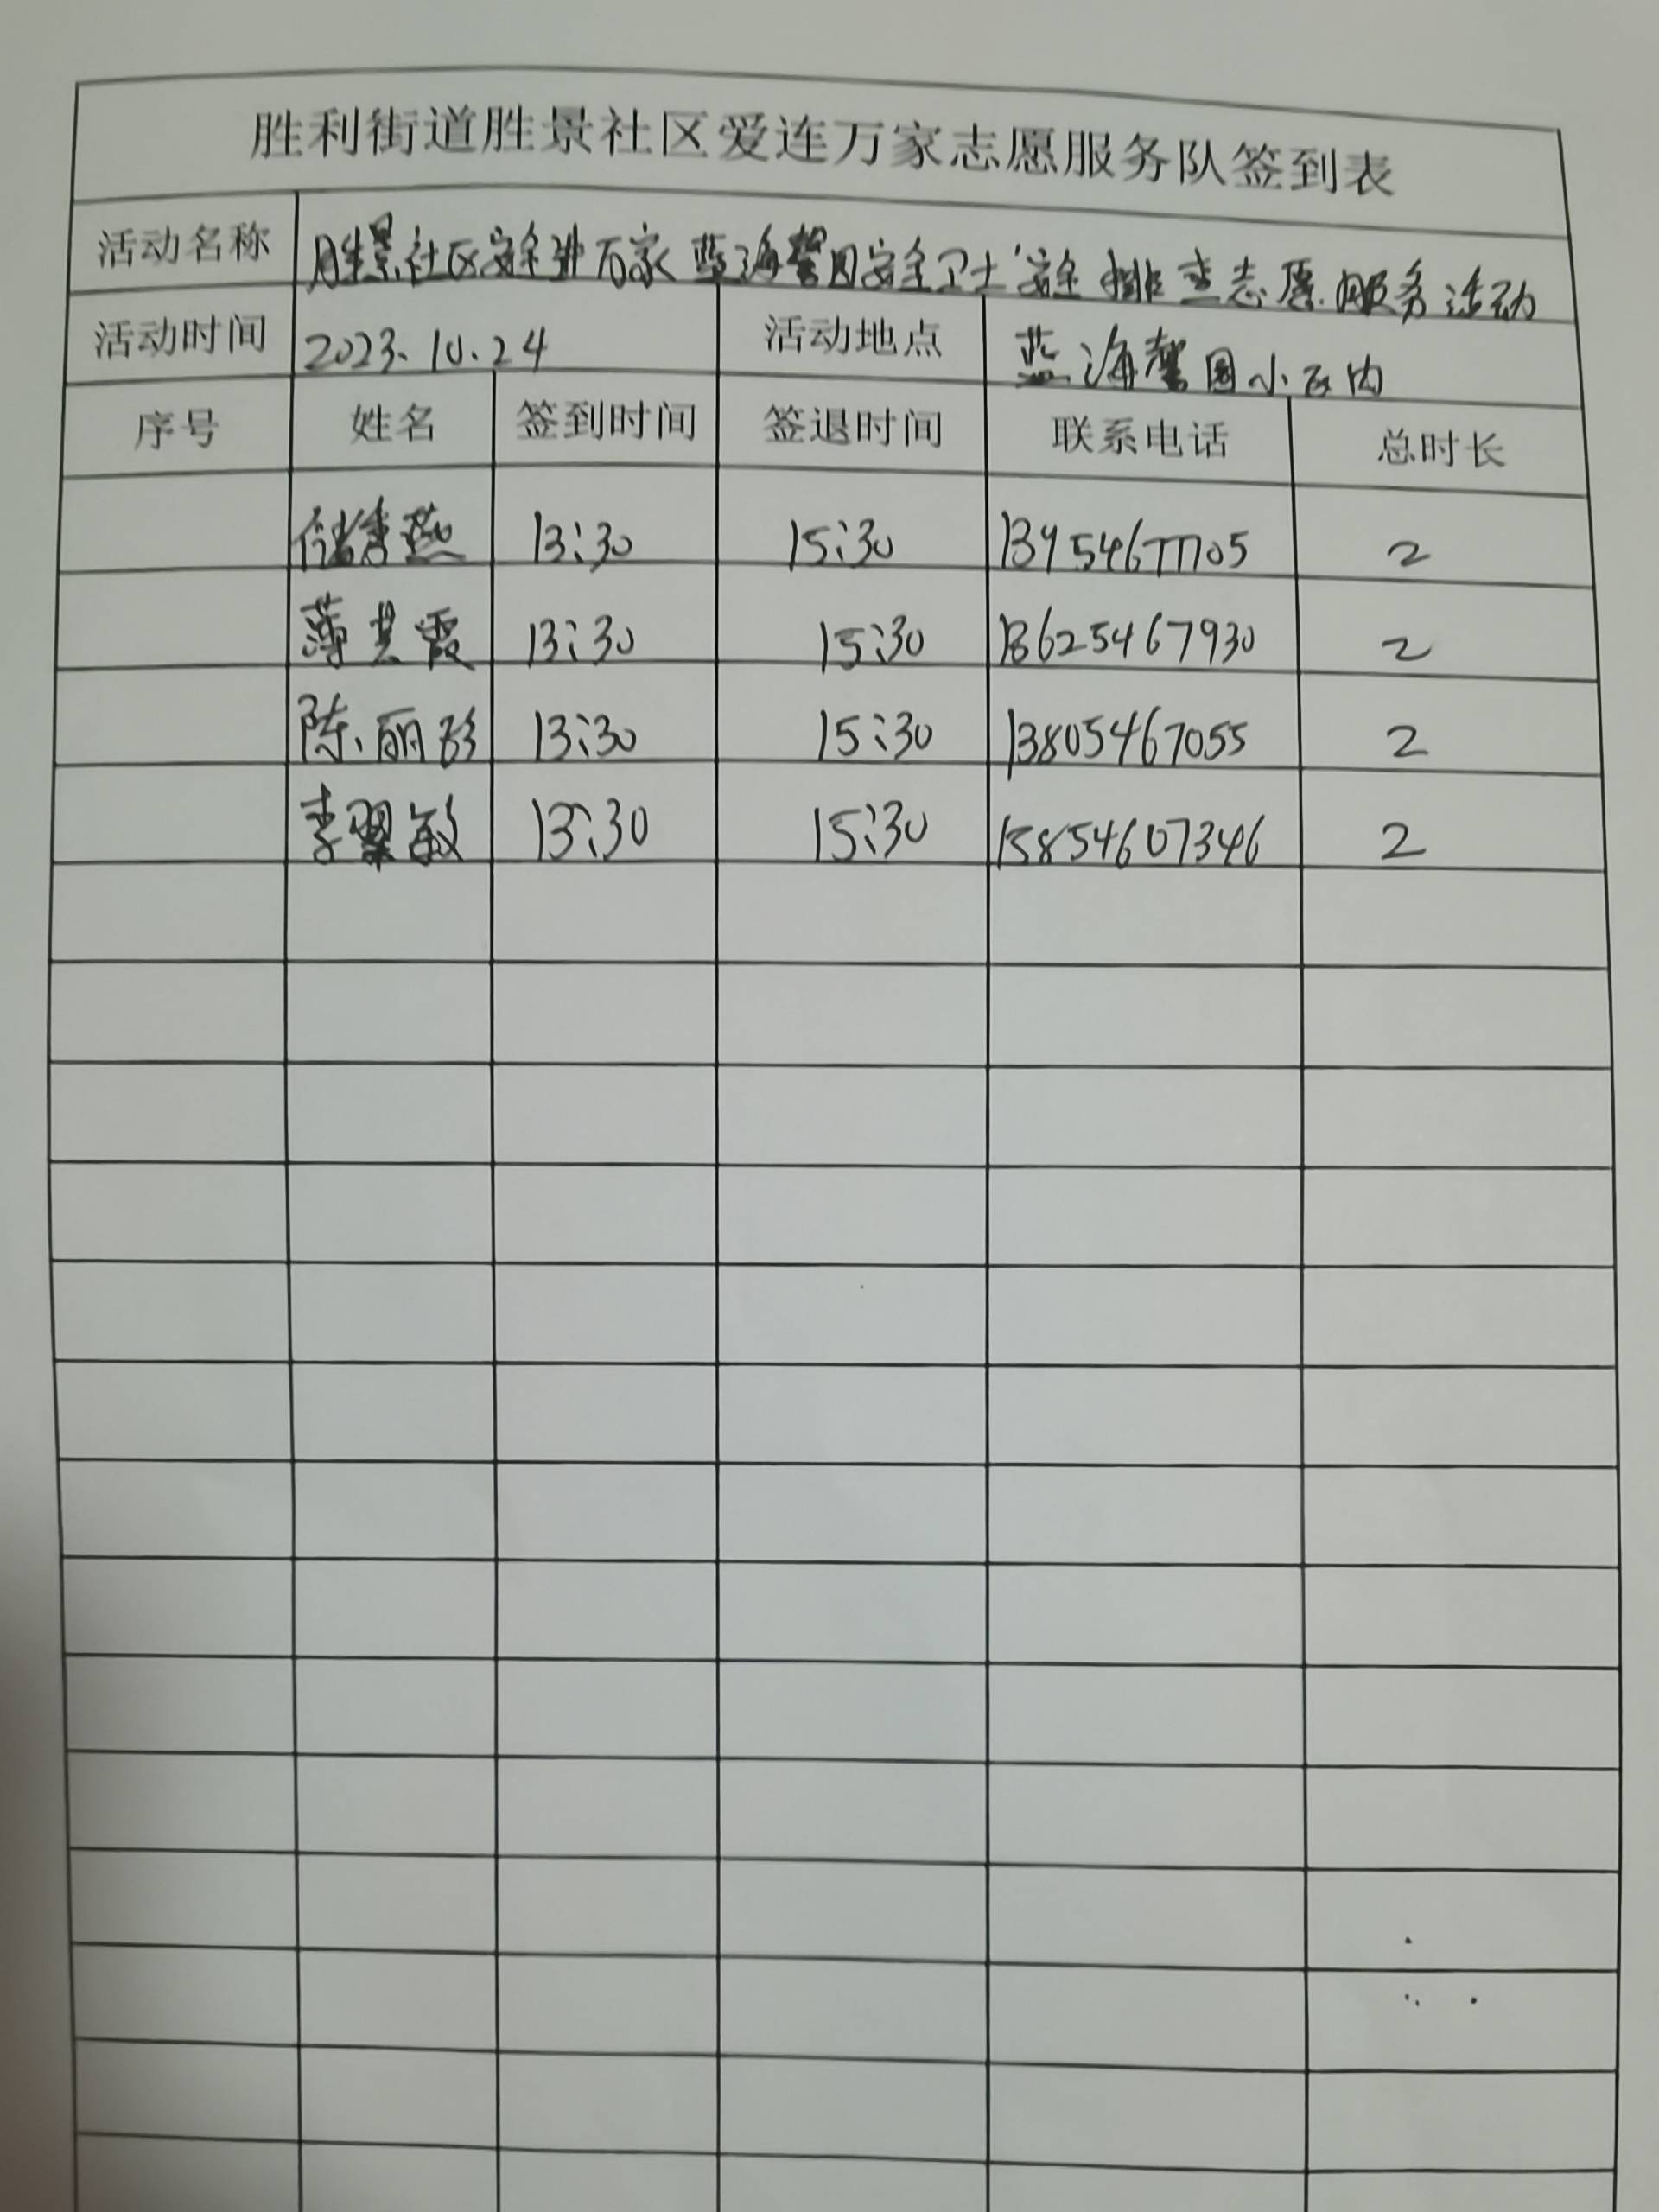 胜利街道胜景社区爱连万家志愿服务队签到表
活动名称 胜景社区安全进万家 蓝海馨园安全卫士"安全排查志愿服务活动
活动时间 2023.10.24 活动地点 蓝海馨园小区内
序号 姓名 签到时间 签退时间 联系电话 总时长
储秀燕 13:30 15:30 2
薄其霞 13:30 15:30 18625467930 2
陈丽珍 13:30 15:30 13805467055 2
李翠敏 13:30 15:30 15854607346 2